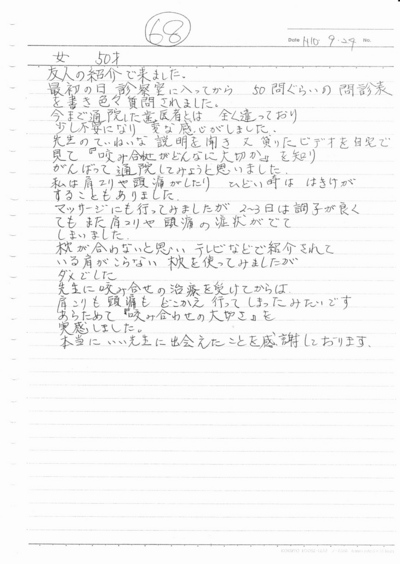 68
Date H15・9・24 No.
女 50才
友人の紹介で来ました。
最初の日 診察室に入ってから 50問ぐらいの問診表
を書き色々質問されました。
今まで通院した歯医者とは 全く違っており
少し不安になり 変な感じがしました。
先生のていねいな説明を聞き 又 貸りたビデオを自宅で
見て『咬み合わせがどんなに大切か』を知り
がんばって通院してみようと思いました。
私は肩コリや頭痛がしたり ひどい時は はきけが
することもありました。
マッサージにも行ってみましたが 2〜3日は調子が良く
ても また肩コリや頭痛の症状がでて
しまいました。
枕が合わないと思い テレビなどで紹介されて
いる肩がこらない 枕を使ってみましたが
ダメでした
先生に咬み合せの治療を受けてからは、
肩こりも頭痛も どこかえ行ってしまったみたいです
あらためて『咬み合わせの大切さ』を
実感しました。
本当に いい先生に出会えたことを感謝しております。